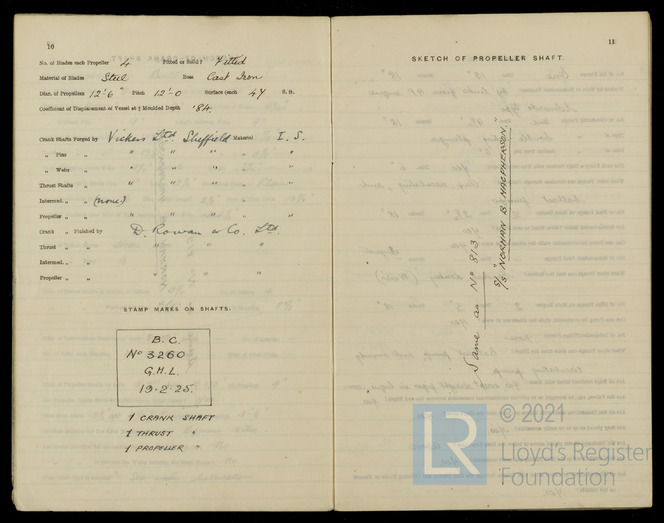 10
No. of Blades each Propeller 4 Fitted or Solid? Fitted
Material of Blades Steel Boss Cast Iron
Diam. of Propellers 12'.6" Pitch 12'.0 Surface (each 47 S. ft.
Coefficient of Displacement of Vessel at ¾ Moulded Depth '84
Crank Shafts Forged by Vickers Ltd. Sheffield Material I. S.
„ Pins „ " " " "
„ Webs „ " " " "
Thrust Shafts „ " " " "
Intermed. „ „ (none) " " " "
Propeller „ „ " " " "
Crank „ Finished by D. Rowan & Co. Ltd.
Thrust „ „ " " "
Intermed. „ „
Propeller „ „ " " "
STAMP MARKS ON SHAFTS.
B.C.
No 3260
G.H.L.
19-2-25.
1 CRANK SHAFT
1 THRUST "
1 PROPELLER "
11
SKETCH OF PROPELLER SHAFT.
Same as No 813
S/S "NORMAN B. MACPHERSON."
LR
© 2021
Lloyd's Register
Foundation